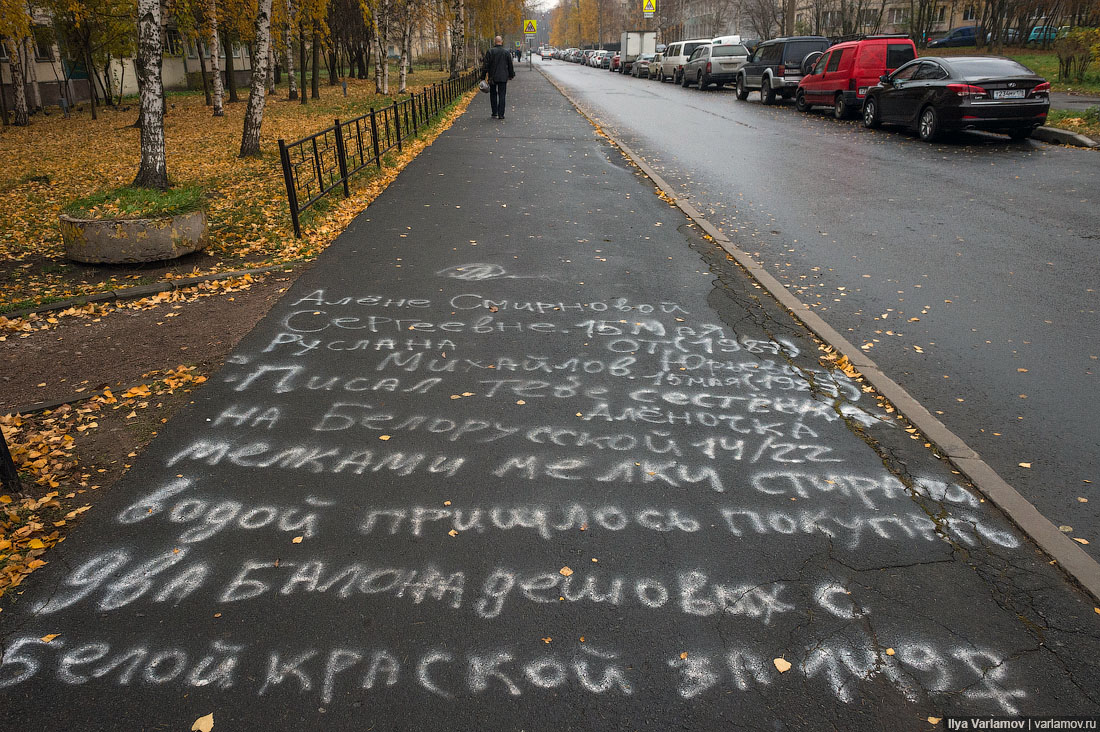 Алёне Смирновой
Сергеевне. 15 мая
Руслана от (1985)
Михайлов Юрьев
Писал тебе сестёнк
15 мая (1985)
на Белорусской 14/22
Алёночка
мелками мелки стирало
водой пришлось покупать
два балона дешовых с
белой краской за 149р
Ilya Varlamov | varlamov.ru